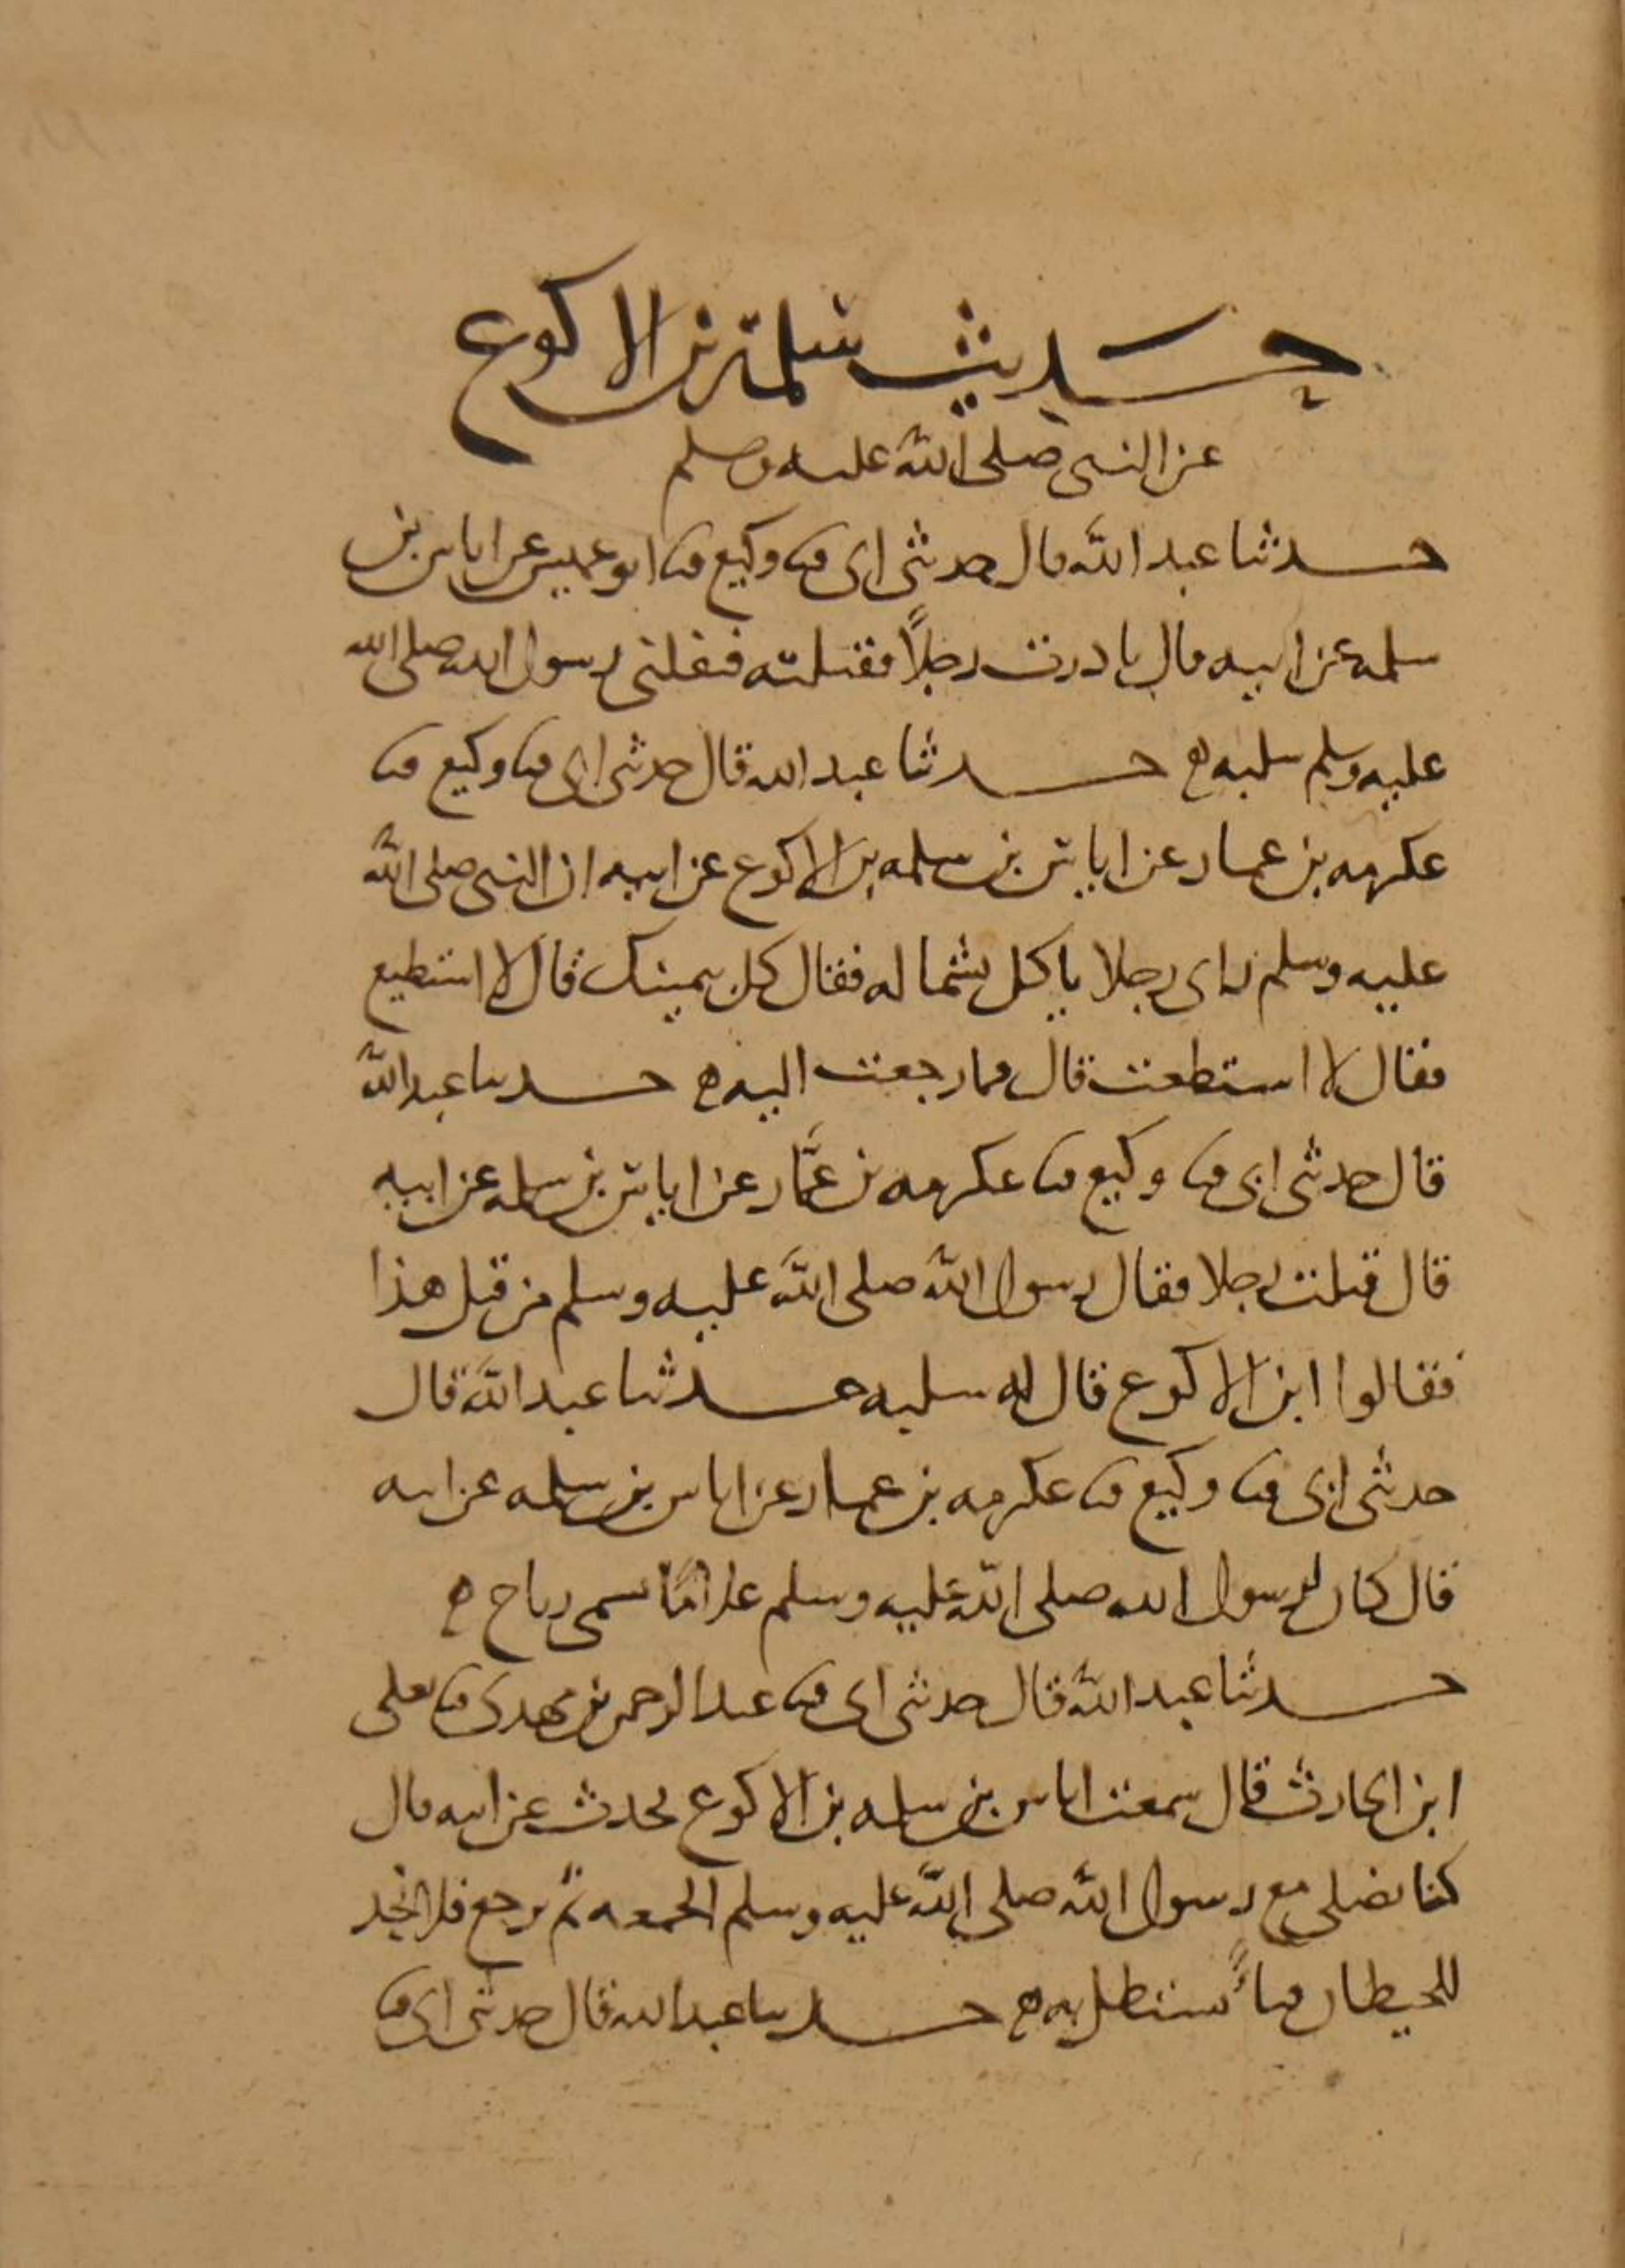 حديث سلمة بن الاكوع
عن النبى صلى الله عليه وسلم
حدثنا عبد الله قال حدثنى ابى ثنا وكيع ثنا ابو عميس عن اياس بن
سلمه عن ابيه قال بادرت رجلاً فقتلته فنفلنى رسول الله صلى الله
عليه وسلم سلبه ه حدثنا عبد الله قال حدثنى ابى ثنا وكيع ثنا
عكرمه بن عمار عن اياس بن سلمه بن الاكوع عن ابيه ان النبى صلى الله
عليه وسلم راى رجلا ياكل بشماله فقال كل بيمينك قال لا استطيع
فقال لا استطعت قال فما رجعت اليه ه حدثنا عبد الله
قال حدثنى ابى ثنا وكيع ثنا عكرمه بن عمّار عن اياس بن سلمه عن ابيه
قال قتلت رجلا فقال رسول الله صلى الله عليه وسلم من قتل هذا
فقالوا ابن الاكوع قال له سلبه حدثنا عبد الله قال
حدثنى ابى ثنا وكيع ثنا عكرمه بن عمار عن اياس بن سلمه عن ابيه
قال كان لرسول الله صلى الله عليه وسلم غلامًا يسمى رباح ه
حدثنا عبد الله قال حدثنى ابى ثنا عبد الرحمن بن مهدى ثنا يعلى
ابن الحارث قال سمعت اياس بن سلمه بن الاكوع يحدث عن ابيه قال
كنا نصلى مع رسول الله صلى الله عليه وسلم الجمعه ثم نرجع فلا نجد
للحيطان فيأً يستظل به ه حدثنا عبد الله قال حدثنى ابى ثنا